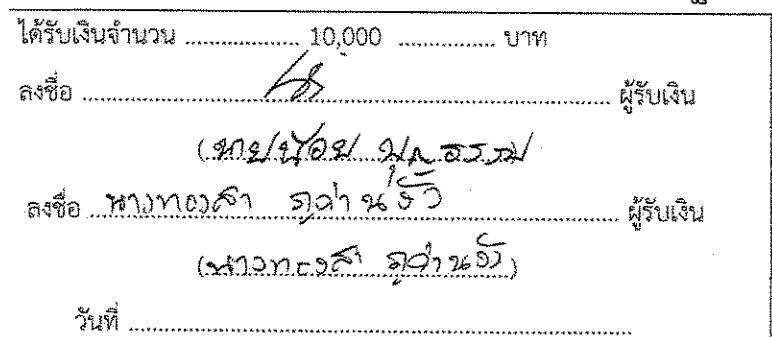 ได้รับเงินจำนวน ................ 10,000 ................ บาท
ลงชื่อ ................ ผู้รับเงิน
(นายน้อย บุญธรรม
ลงชื่อ นางทองสา ภูด่านงัว ผู้รับเงิน
(นางทองสา ภูด่านงัว)
วันที่ ................